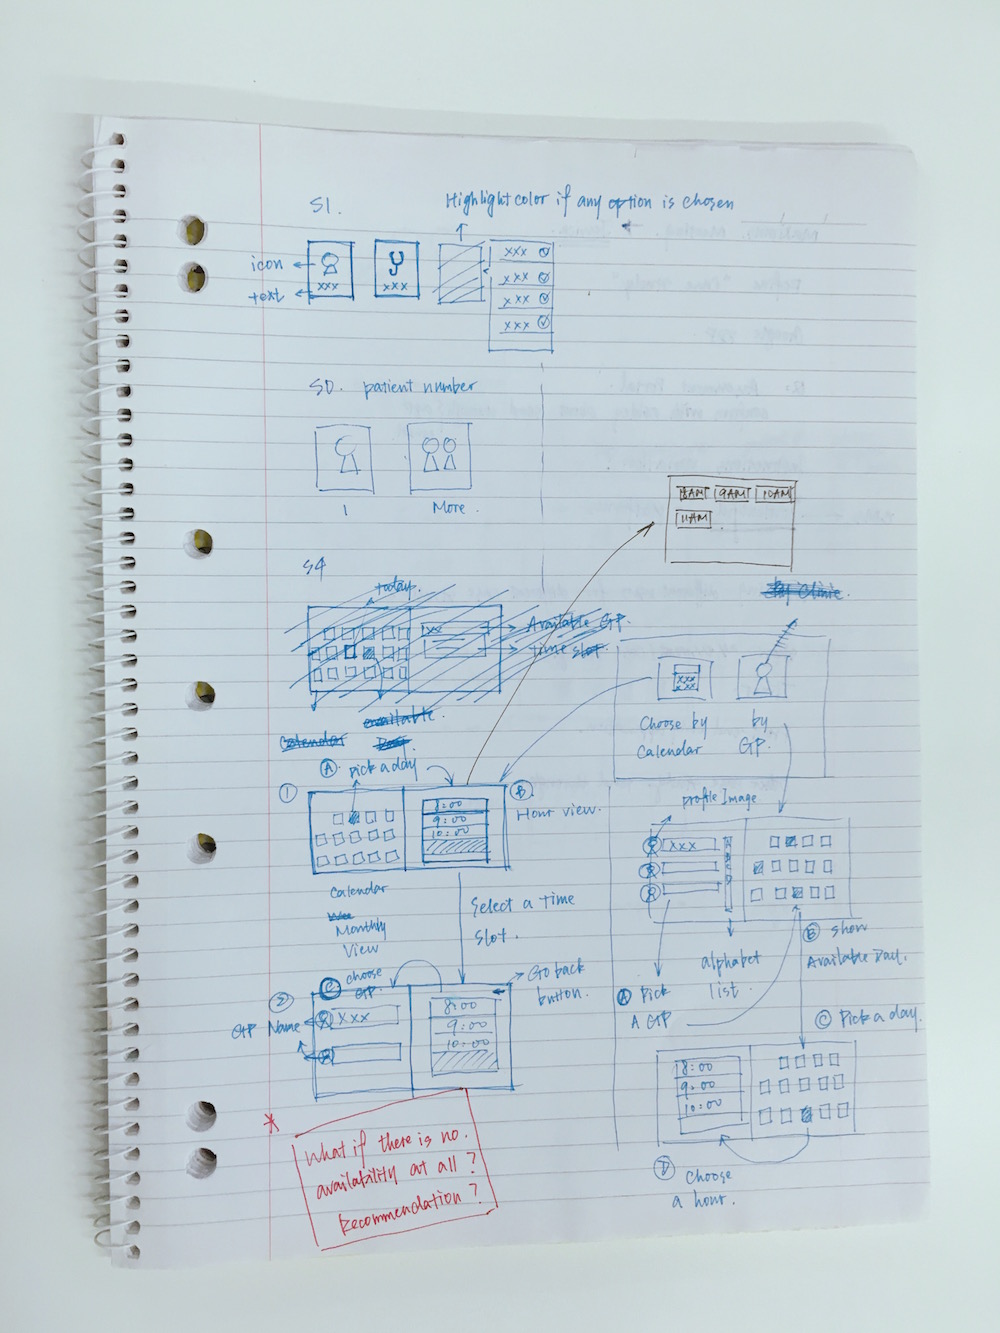 S1.
Highlight color if any option is chosen
icon
text
xxx
xxx
xxx
xxx
xxx
xxx
S0. patient number
1
More.
8AM 9AM 10AM
11AM
S4
today.
xx
Available GP.
time slot.
available
Calendar
Day.
by Clinic.
Choose by
Calendar
by
GP.
A pick a day
1
8:00
9:00
10:00
B
Hour view.
Calendar
Monthly
View
Select a time
slot.
profile Image
xxx
alphabet
list.
A Pick
A GP
B show
Available Day.
C Pick a day.
C choose
GP.
2
GP Name
xxx
8:00
9:00
10:00
Go back
button.
18:00
9:00
10:00
D choose
a hour.
*
What if there is no.
availability at all?
Recommendation?